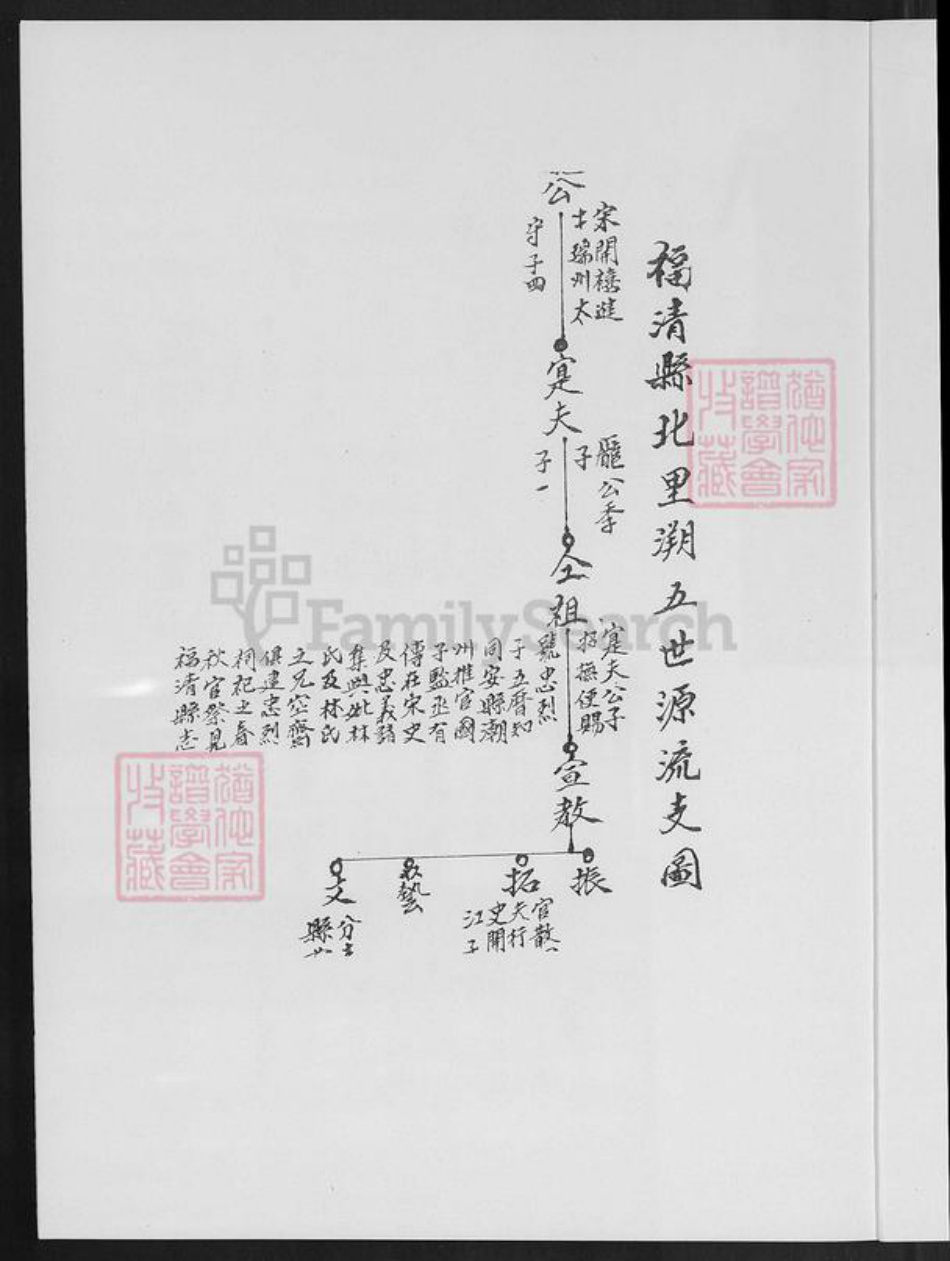 福清縣北里溯五世源流支圖
公
宋開禧進
士瑞州太
守子四
寔夫
公季
子
子一
仝祖
寔夫公子
招撫使賜
號忠烈
子五曆知
同安縣潮
州推官國
子監丞有
傳在宋史
及忠義諸
集與妣林
氏及林氏
立兄空齋
俱建忠烈
祠祀之春
秋官祭見
福清縣志
宣教
振
拓
官散
夫行
史開
江子
藝
文
分
縣
FamilySearch
猶他家
譜學會
收藏
猶他家
譜學會
收藏